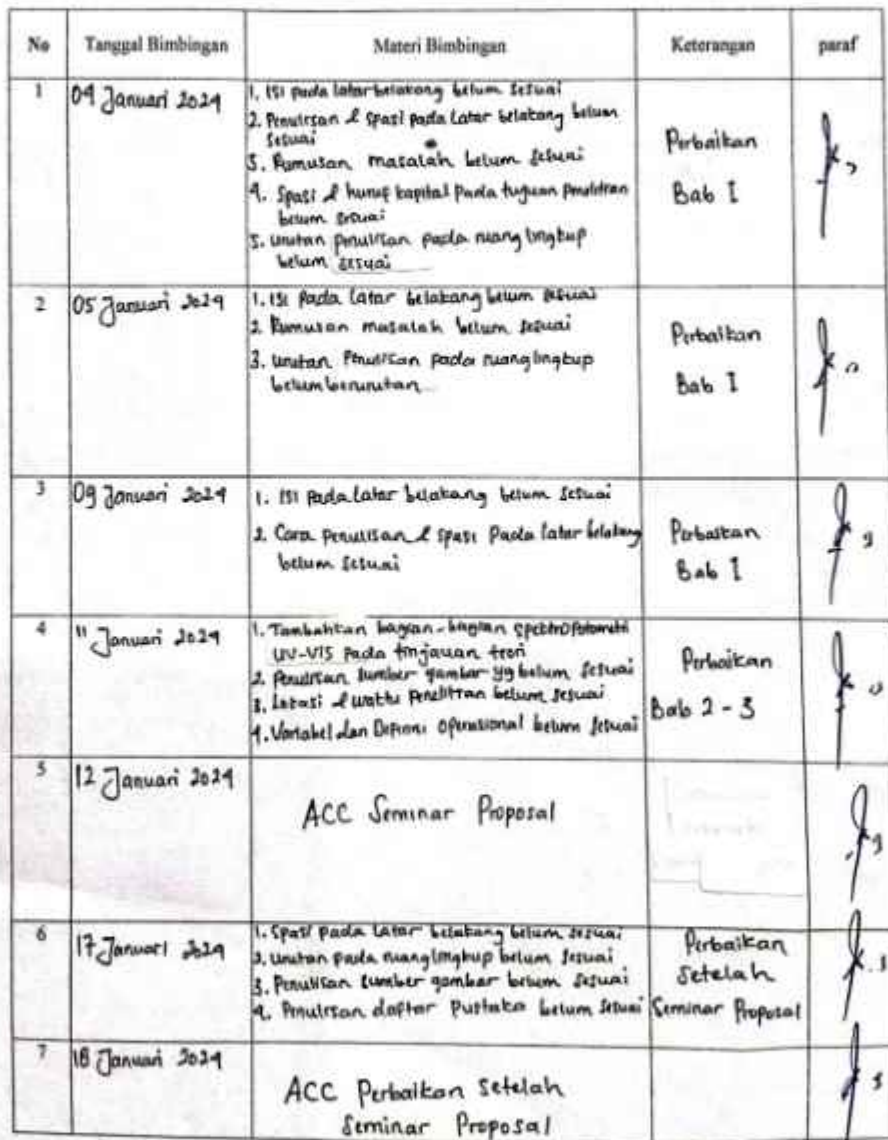 No Tanggal Bimbingan Materi Bimbingan Keterangan paraf
1 04 Januari 2024
1. ISI pada latar belakang belum sesuai
2. Penulisan & spasi pada Latar belakang belum
sesuai
3. Rumusan masalah belum sesuai
4. Spasi & huruf kapital pada tujuan penelitian
belum sesuai
5. Urutan penulisan pada ruang lingkup
belum sesuai
Perbaikan
Bab I
2 05 Januari 2024
1. ISI Pada Latar belakang belum sesuai
2. Rumusan masalah belum sesuai
3. Urutan Penulisan pada ruang lingkup
belum berurutan
Perbaikan
Bab I
3 09 Januari 2024
1. ISI pada latar belakang belum sesuai
2. Cara penulisan & spasi Pada latar belakang
belum sesuai
Perbaikan
Bab I
4 11 Januari 2024
1. Tambahkan bagian-bagian spektrofotometri
UV-VIS Pada tinjauan teori
2. Penulisan sumber gambar yg belum sesuai
3. Lokasi & waktu Penelitian belum sesuai
4. Variabel dan Definisi Operasional belum sesuai
Perbaikan
Bab 2 - 3
5 12 Januari 2024
ACC Seminar Proposal
6 17 Januari 2024
1. Spasi pada Latar belakang belum sesuai
2. Urutan pada ruang lingkup belum sesuai
3. Penulisan sumber gambar belum sesuai
4. Penulisan daftar Pustaka belum sesuai
Perbaikan
setelah
Seminar Proposal
7 18 Januari 2024
ACC Perbaikan setelah
Seminar Proposal